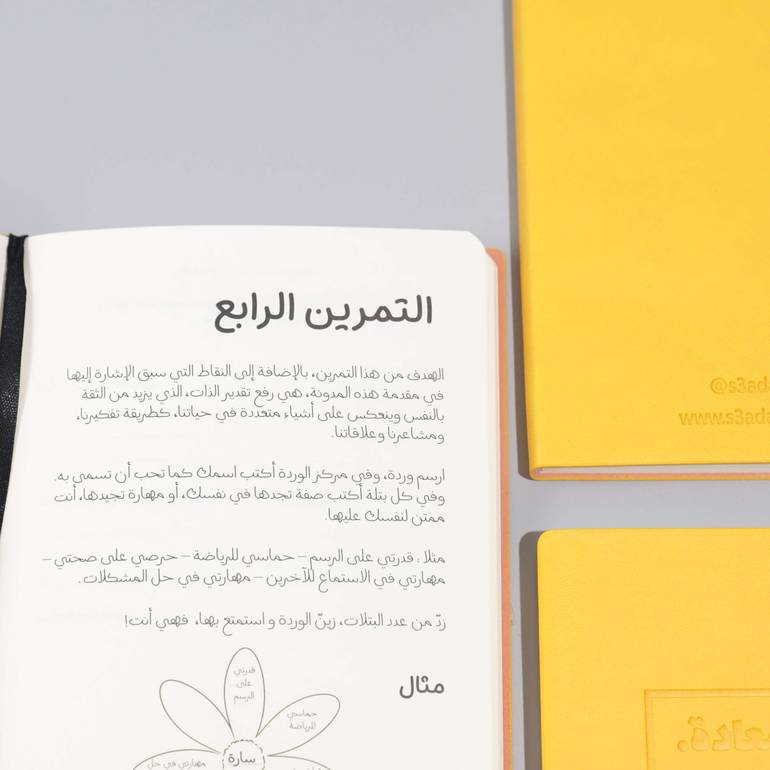 التمرين الرابع
الهدف من هذا التمرين، بالإضافة إلى النقاط التي سبق الإشارة إليها
في مقدمة هذه المدونة، هي رفع تقدير الذات، الذي يزيد من الثقة
بالنفس وينعكس على أشياء متعددة في حياتنا، كطريقة تفكيرنا،
ومشاعرنا وعلاقاتنا.
ارسم وردة، وفي مركز الوردة أكتب اسمك كما تحب أن تسمى به.
وفي كل بتلة أكتب صفة تجدها في نفسك، أو مهارة تجيدها، أنت
ممتن لنفسك عليها.
مثلا : قدرتي على الرسم – حماسي للرياضة – حرصي على صحتي –
مهارتي في الاستماع للآخرين – مهارتي في حل المشكلات .
زدّ من عدد البتلات، زينّ الوردة و استمتع بها، فهي أنت!
مثال
قدرتي
على
الرسم
حماسي
للرياضة
سارة
مهارتي في حل
@s3ad
www.s3ada